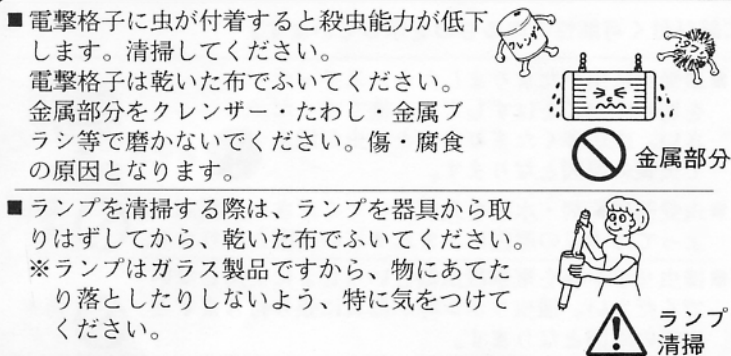 ■電撃格子に虫が付着すると殺虫能力が低下
します。清掃してください。
電撃格子は乾いた布でふいてください。
金属部分をクレンザー・たわし・金属ブ
ラシ等で磨かないでください。傷・腐食
の原因となります。
クレンザー
金属部分
■ランプを清掃する際は、ランプを器具から取
りはずしてから、乾いた布でふいてください。
※ランプはガラス製品ですから、物にあてた
り落としたりしないよう、特に気をつけて
ください。
ランプ
清掃